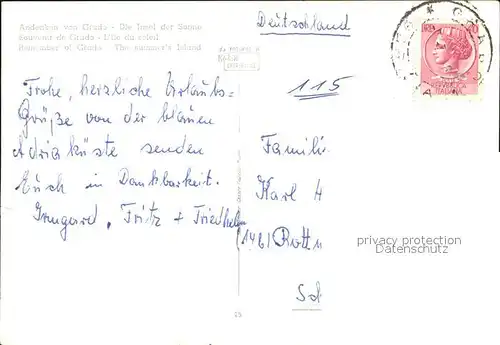 Andenken von Grado - Die Insel der Sonne
Souvenir de Grado - L'île du soleil
Remember of Grado - The summer's Island
Deutschland
115
Frohe, herzliche Urlaubs-
Grüße von der blauen
Adriaküste senden
Euch in Dankbarkeit.
Irmgard, Fritz + Friedhelm
Famili
Karl H
(1461 Rott
Sch
privacy protection
Datenschutz
GRADO
ITALIANA